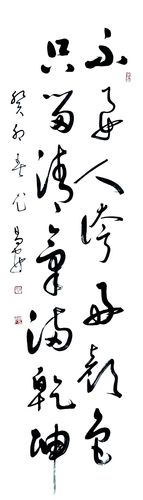 不要人誇好顏色
只留清氣滿乾坤
癸卯春